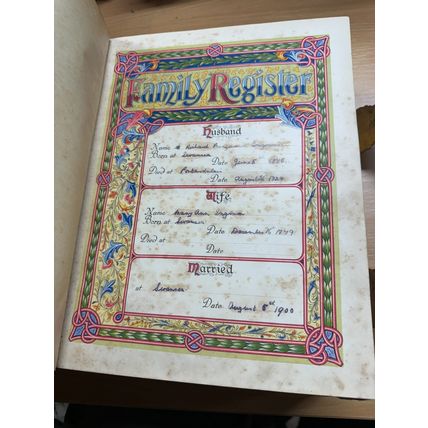 Family Register
Husband
Name Richard
Born at Swansea Date June 8
Died at Date August
Wife
Name Mary Ann
Born at Swansea Date December
Died at Date
Married
at Swansea
Date August 8th 1900